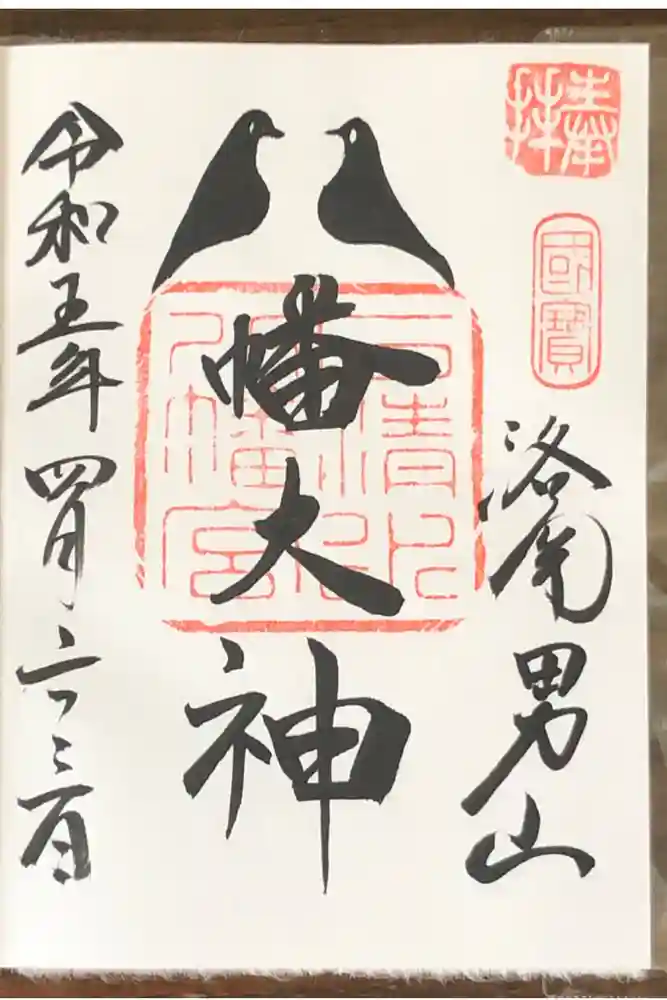 奉拝
國寶
洛南男山
八幡大神
石清水
八幡宮
令和五年四月二十三日